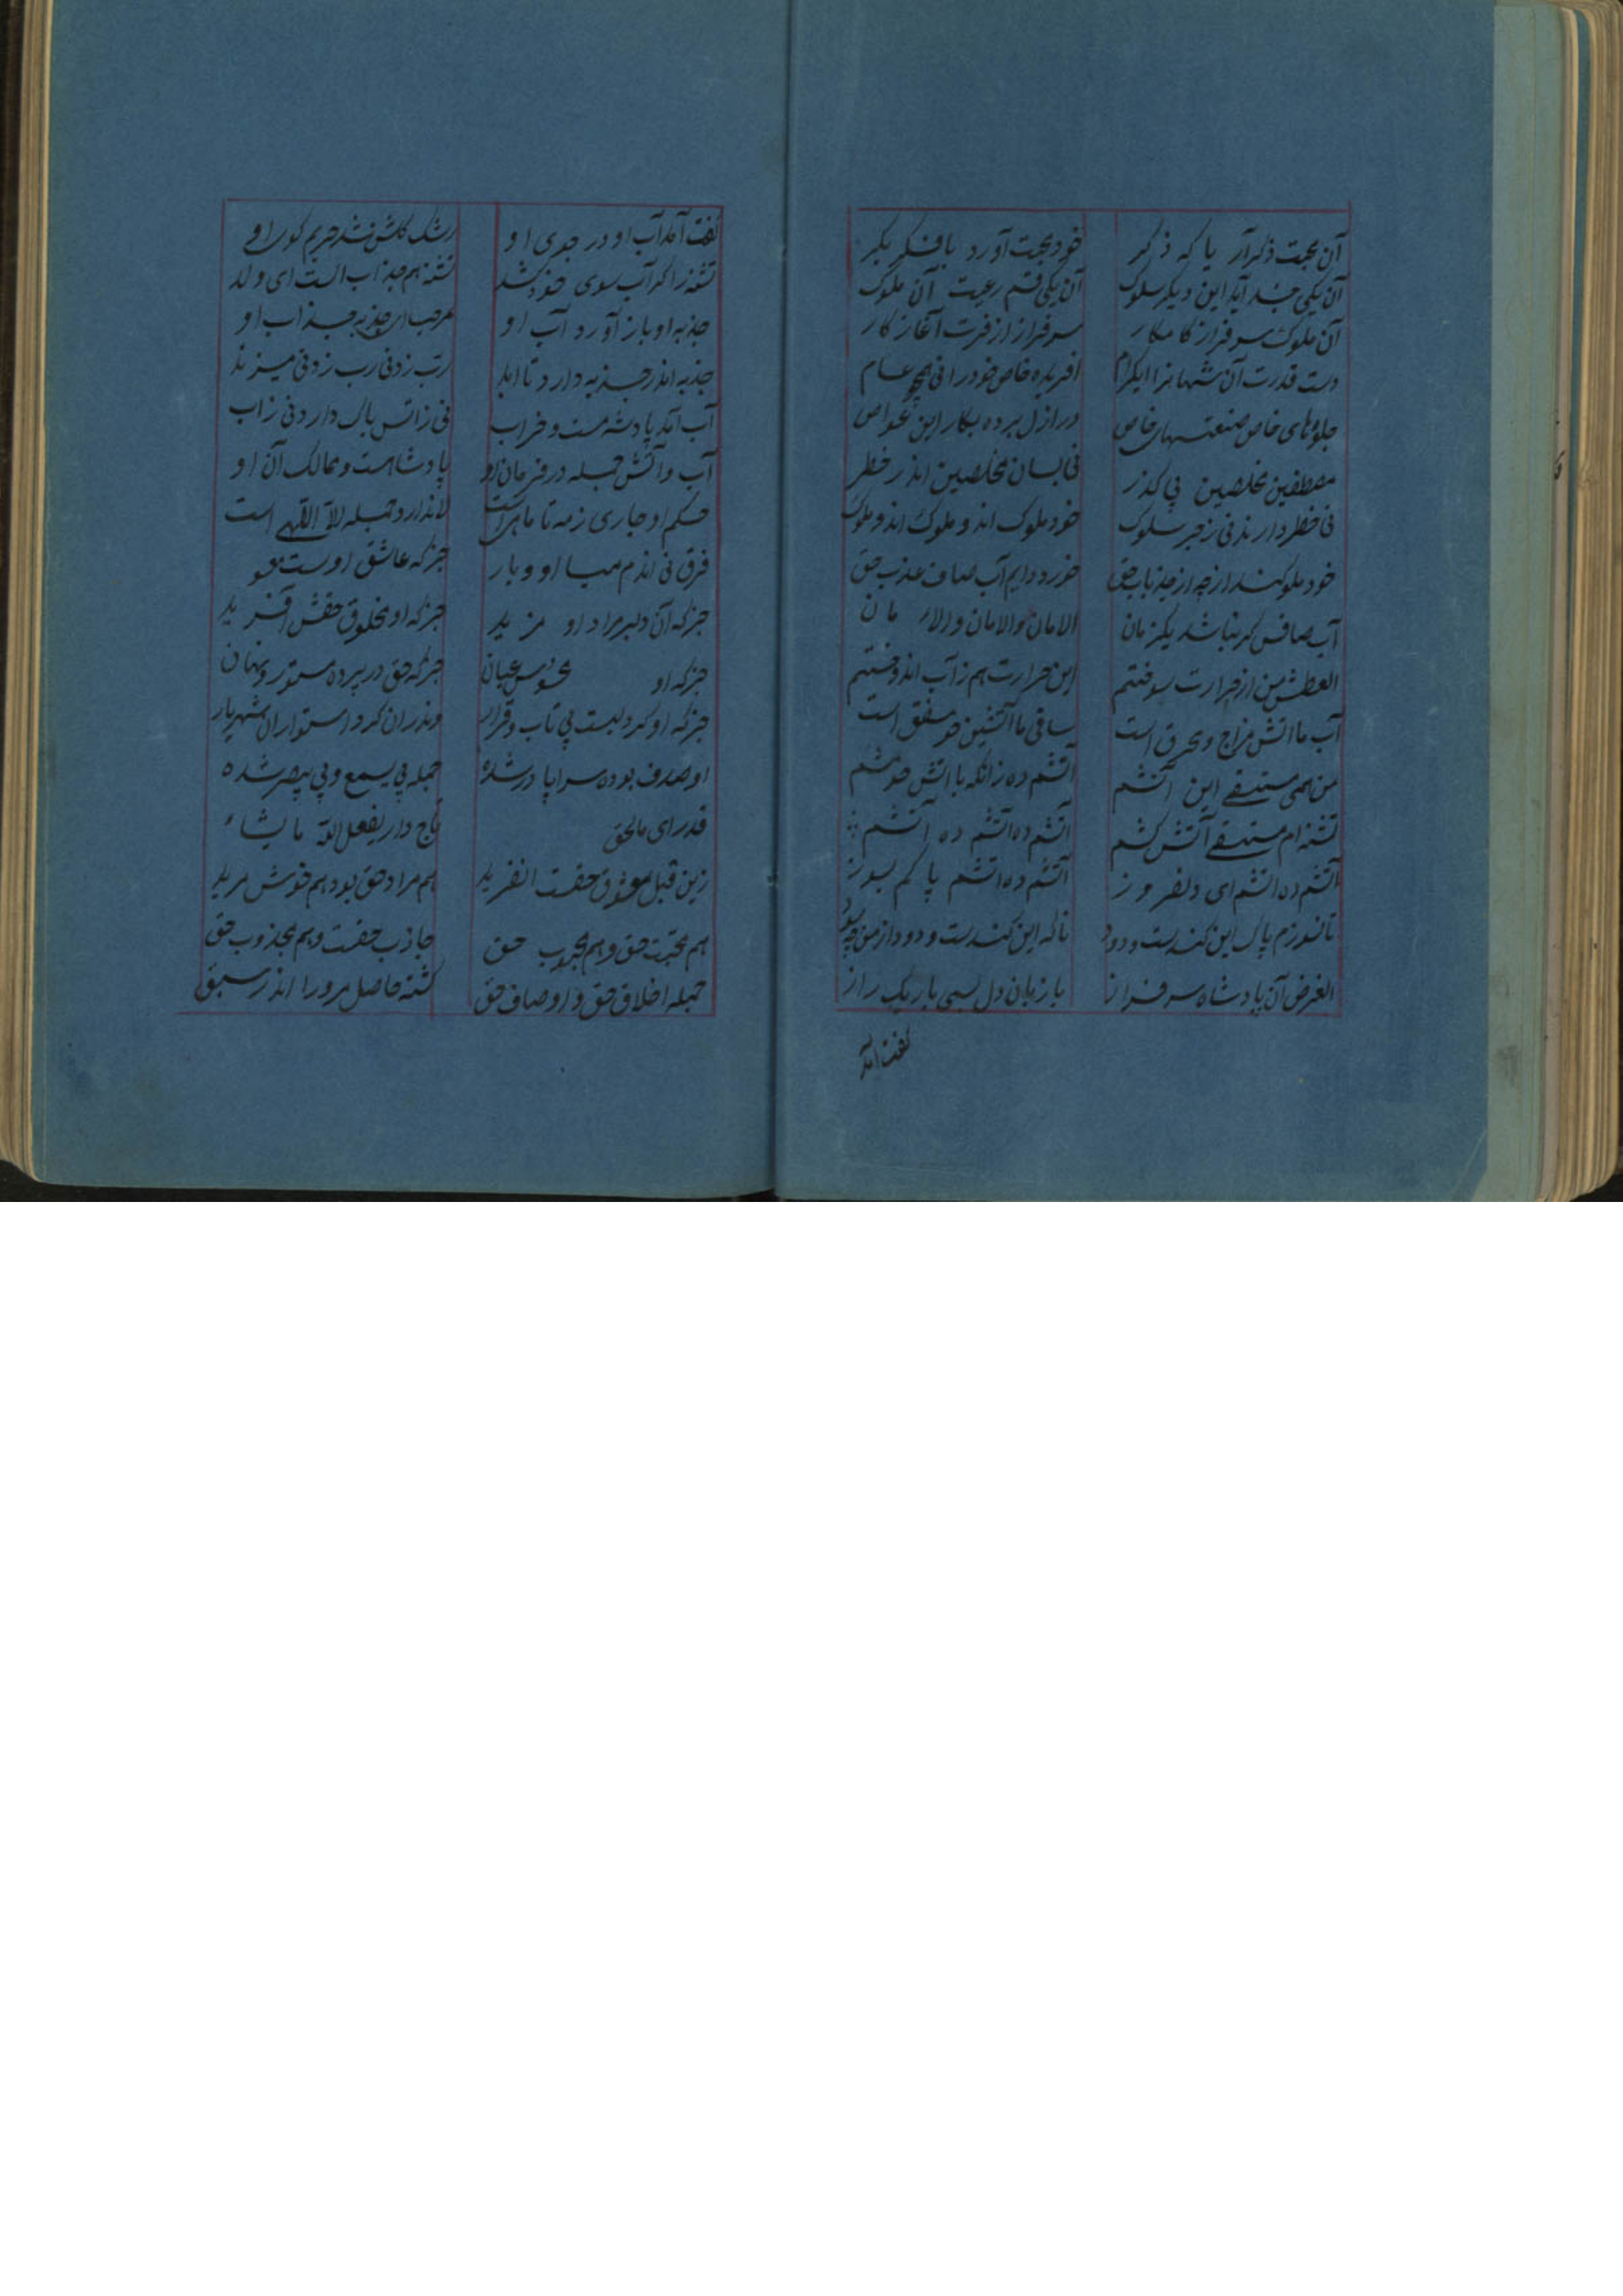 آن بحجت ذکر آر یا که ذکر خود بحجت آورد با فکر بکر
آن یکی آید این دیگر سلوک آن یکی قسم رعیت آن ملوک
آن ملوک سرفراز کامکار سرفراز از آغاز کار
دست قدرت آن شهانرا افریده خاص خود را نی عام
جلوهای خاص صنعتهای خاص در ازل برده بکار این
مصطفین مخلصین بی کذر نی بسان مخلصین اندر خطر
نی خطر دارند نی زجر سلوک خود ملوک اند و ملوک اند و ملوک
خود از چه از جذبات حق خورده دایم آب صاف عذب حق
آب صافس کر نباشد یکزمان الامان و الامان و الامان
العطش من از حرارت سوختم این حرارت هم ز آب اندوختم
آب ما اتش مزاج و محرق است ساقی ما آتشین است
من همی مستسقی این آتشم آتشم ده زانکه با اتش خوشم
تشنه ام مستسقی آتش کشم آتشم ده اتشم ده آتشم
آتشم ده اتشم ای دلفروز آتشم ده اتشم پاکم بسوز
تا نسوزم پاک این کندست و دود تا که این کندست و دود از من چه سود
الغرض آن پادشاه سرفراز با زبان دل بسی باریک راز
گفت آمد
گفت آمد آب او در جوی او رشک گلشن شد حریم کوی او
تشنه را گر آب سوی خود کشد تشنه هم جذاب است ای ولد
جذبه او باز آورد آب او مرحبا جذبه جذاب او
جذبه اندر جذبه دارد تا ابد رب زدنی رب زدنی میزند
آب آمد پادشه مست و خراب نی ز اتش باک دارد نی ز اب
آب و آتش جمله در فرمان او پادشاهست و ممالک آن او
حکم او جاری ز مه تا ماهی است جمله است
فرق نی اندر میا او و یار جز که عاشق اوست
جز که آن دلبر مراد او مزید جز که او مخلوق حقش آفرید
جز که او عیان جز که حق در پرده مستور و نهان
جز که او کردلیست بی تاب و قرار وندران کرد استوار آن شهریار
او صدف بوده سراپا در شده جمله بی یسمع و بی یبصر شده
قدرای تاج دار یفعل الله ما یشاء
زین قبل حقت هم مراد حق بود هم خوش مرید
هم محبت حق و هم محبوب حق جاذب حقت و هم مجذوب حق
جمله اخلاق حق و اوصاف حق کشته حاصل مر ورا اندر سبق